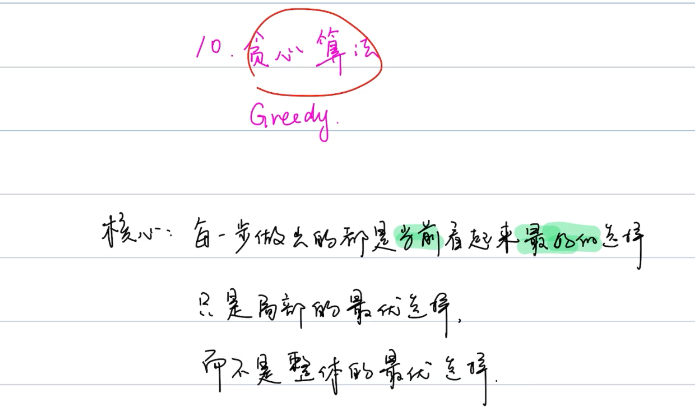 10. 贪心算法
Greedy.
核心: 每一步做出的都是当前看起来最好的选择
只是局部的最优选择,
而不是整体的最优选择.